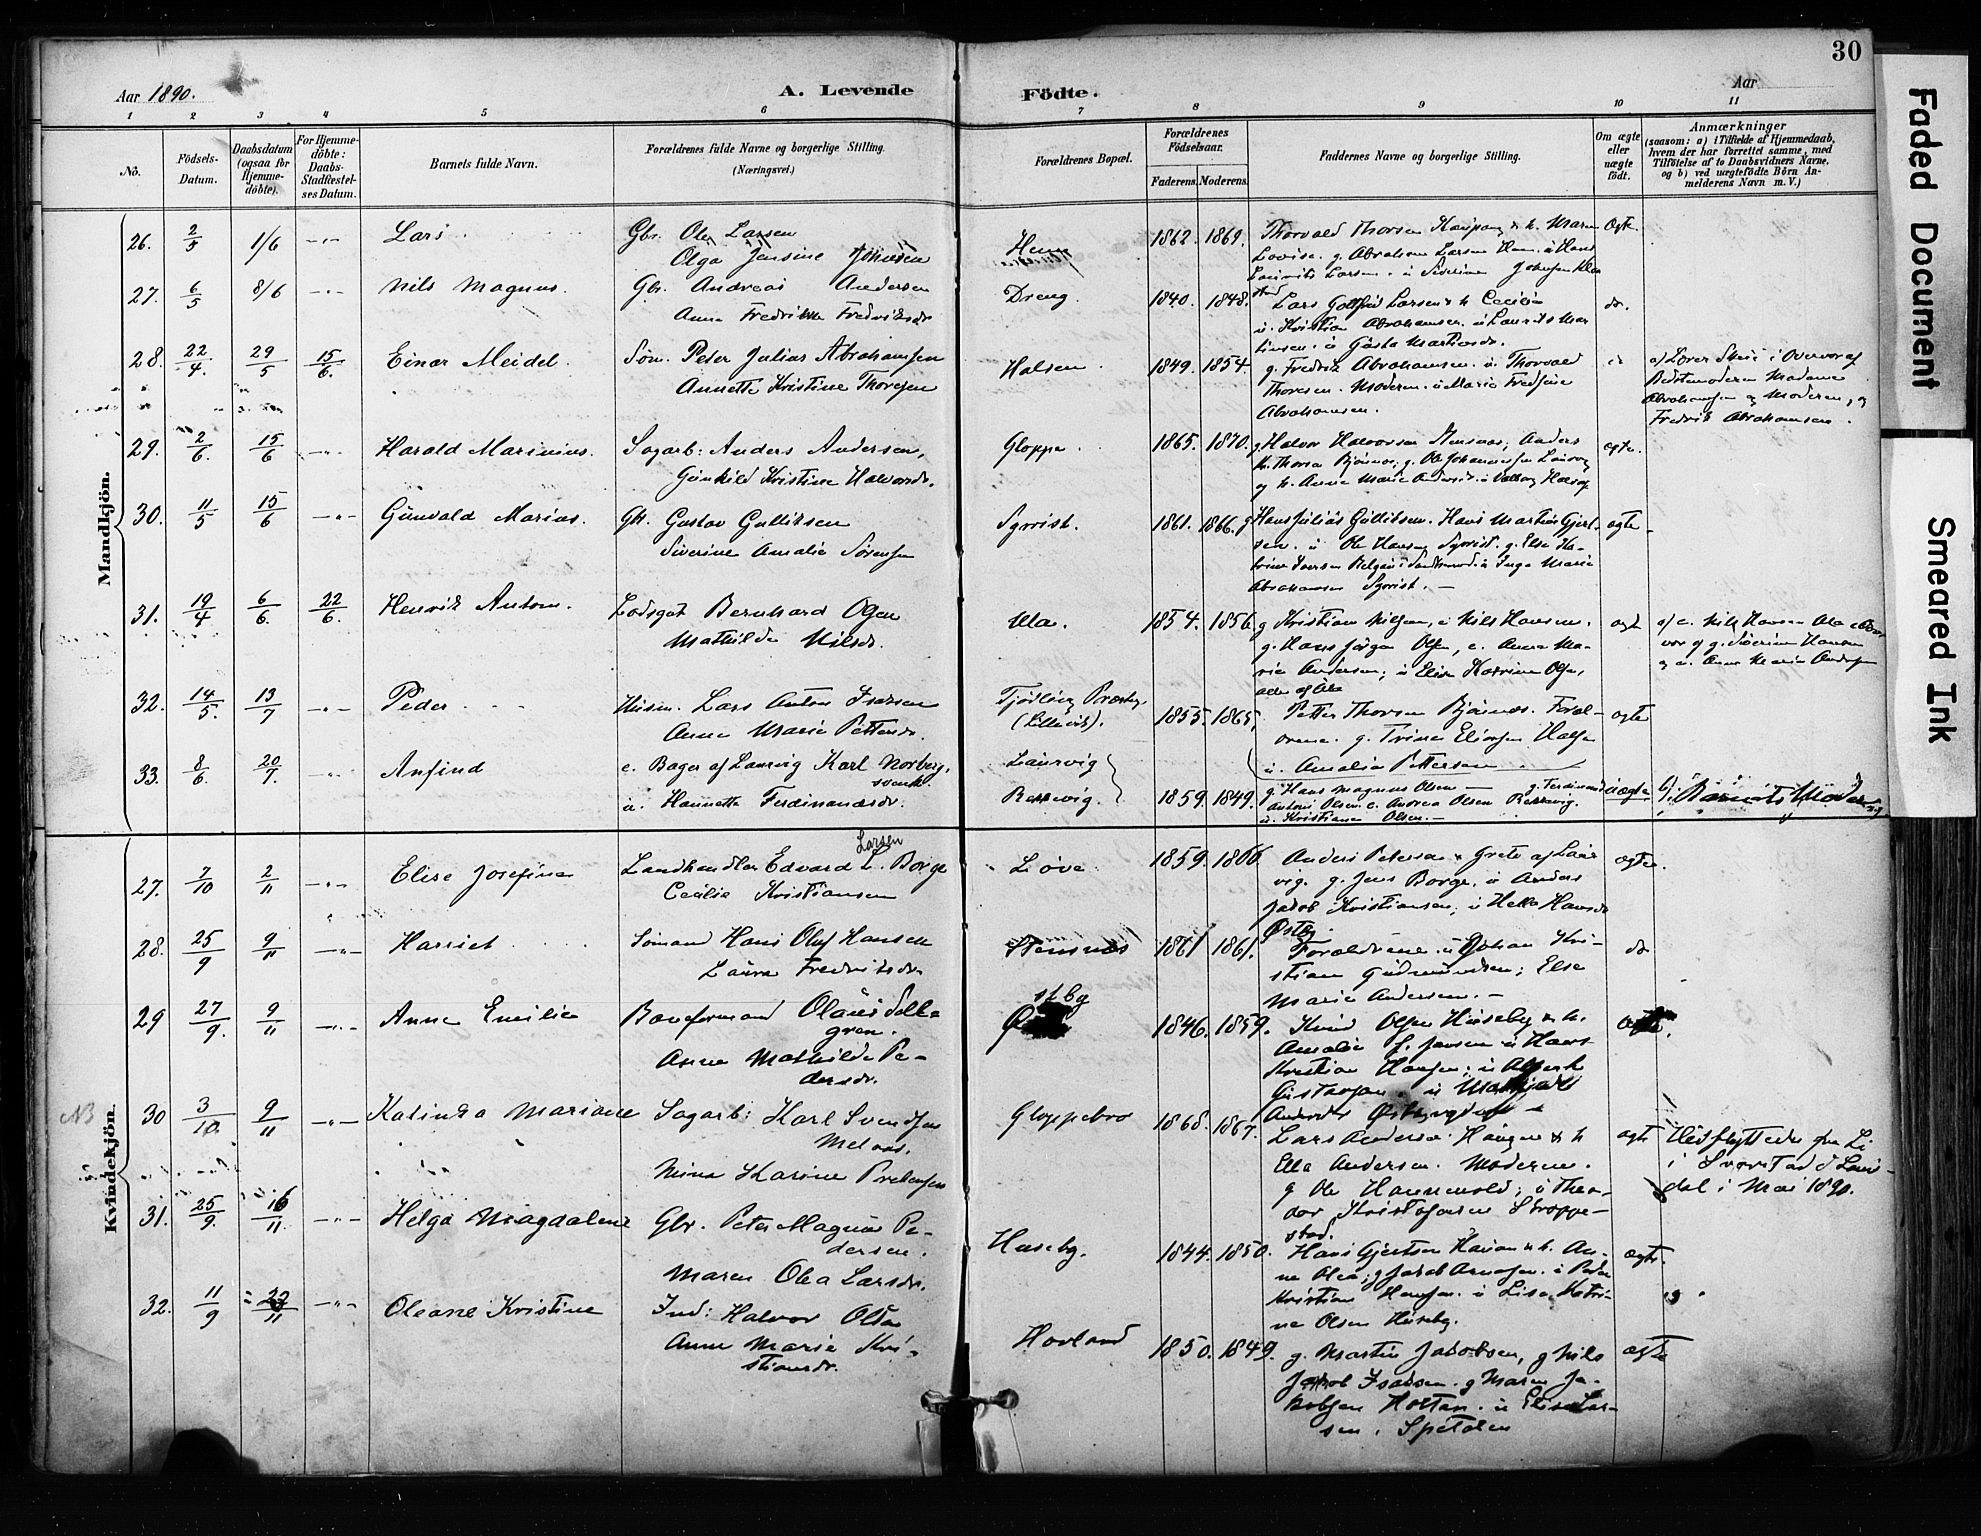 30
Aar 1890.
A. Levende
Födte.
Aar
1 2 3 4 5 6 7 8 9 10 11
No.
Födsels-
Datum.
Daabsdatum
(ogsaa for
Hjemme-
döbte).
For Hjemme-
döbte:
Daabs-
Stadfæstel-
ses Datum.
Barnets fulde Navn.
Forældrenes fulde Navne og borgerlige Stilling.
(Næringsvei.)
Forældrenes Bopæl.
Forældrenes
Födselsaar.
Faderens. Moderens.
Faddernes Navne og borgerlige Stilling.
Om ægte
eller
uægte
födt.
Anmærkninger
(saasom: a) i Tilfælde af Hjemmedaab,
hvem der har forrettet samme, med
Tilföielse af to Daabsvidners Navne,
og b) ved uægtefödte Börn An-
melderens Navn m. V.)
Mandkjön.
26. 2/5 1/6 -"- Lars
Gbr. Ole Larsen
Olga Jensine
1862. 1869.
Thorvald Thorsen Kaupang & h. Maren
Lovise. g. Abraham Larsen
Ægte.
27. 6/5 8/6 -"- Nils Magnus.
Gbr. Andreas Andersen
Anna Fredrikke Fredriksdr.
Dreng. 1840. 1848.
Lars Larsen & h. Cecilie
u. Kristian Abrahamsen. u Laurits Mar
tinsen. u
do.
28. 22/4. 29/5 15/6. Einar Meidel.
Söm. Peter Julius Abrahamsen
Annette Kristine Thoresen
Halsen. 1849. 1854
g. Fredrik Abrahamsen. u. Thorvald
Thoresen. Moderen. u Marie
Abrahamsen.
a) Lærer i Overvær af
Bedstemoderen Madame
Abrahamsen og Moderen, og
Fredrik Abrahamsen.
29. 2/6. 15/6 -"- Harald Marinius.
Sagarb: Anders Andersen,
Gunhild Kristine Halvorsdr.
Gloppe. 1865. 1870.
g Halvor Halvorsen Stensnæs, Anders
h. Thorsen Bjönnes; g. Ole Johannesen
og h. Anne Marie
ægte.
30. 11/5 15/6 -"- Gunvald Marius.
Gbr. Gustav Gulliksen
Siverine Amalie Sörensen
Syvrist. 1861. 1866.
g Hans Julius Gulliksen. Hans Martin Gjert-
sen. u Ole Hansen Syvrist. g. Else Ka-
trine Iversen u Inga Marie
Abrahamsen Syvrist. -
ægte
31. 19/4 6/6. 22/6. Henrik Anton.
Lodsgut Bernhard Olsen
Mathilde Nilsdr.
Ula. 1854. 1856.
g Kristian Nilsen, e. Nils Hansen.
g. Hans Jörgen Olsen, e. Anne Ma-
rie Andersen; u Elise Katrine Olsen,
alle af Ula
ægte
a) e. Nils Hansen Ula
g. Severine Hansen
og u. Anne Marie Andersen
32. 14/5. 13/7 -"- Peder
Husm. Lars Anton Isaksen
Anne Marie Pettersdr.
Tjödling Præstg.
(Lillevik). 1855. 1865.
Petter Thorsen Bjönnes. Foræl-
drene. g. Trine Eliasen Halsen
u. Amalia Pettersen.
ægte
33. 8/6. 20/7. -"- Anfind
e. Bager af Laurvig Karl Norberg,
svensk.
u. Hannette Ferdinandsdr.
Laurvig
Rekkevig. 1859. 1849.
g. Hans Magnus Olsen - g. Ferdinand
Anton Olsen e. Andrea Olsen Rekkevig.
u. Kristiane Olsen. -
uægte
b): Barnets Moder
Kvindekjön.
27. 7/10 2/11 -"- Elise Josefine
Larsen
Landhandler Edvard L. Borge
Cecilie Kristiansen
Löve. 1859. 1866
Anders Petersen & Grete af Laur
vig. g. Jens Borge. u Anders
Jakob Kristiansen; u Helle Hansdr
Östby.
ægte.
28. 25/9 9/11 -"- Harriet
Sömand Hans Oluf Hansen
Laura Fredriksdr.
Stensnæs 1861 1861.
Forældrene. u Johan Kri-
stian Gudmundsen; Else
Marie Andersen. -
do
29 27/9. 9/11 -"- Anne Emilie
Baneformand Olaus Selle
gren.
Anne Mathilde Pe-
dersdr.
stbg
1846. 1859.
Knud Olsen Huseby & h.
Amalie f. Jansen u Hans
Kristian Hansen; u Albert
Gustavsen. u Mathilde
ægte.
NB
30 3/10. 9/11 -"- Katinka Mariane
Sagarb: Karl Svendsen
Melaas.
Mina Karine Prebensen
Gloppebro 1868. 1867.
Lars Andersen Haugen & h
Ella Andersen. Moderen.
g Ole Hannevold; u Theo-
dor Kristofersen Skroppe-
stad.
ægte
Udflyttede fra Li
i Svarstad d Lau-
dal i Mai 1890.
31. 25/9. 16/11 -"- Helga Magdalene
Gbr. Peter Magnus Pe-
dersen.
Maren Olea Larsdr.
Huseby. 1844. 1850.
Hans Gjertsen Hauan & h. An-
ne Olea; g Jakob Arnesen. u Peder
Kristian Hansen. u Lisa Katri-
ne Olsen Huseby.
ægte.
32. 11/9 23/11 -"- Oleane Kristine
Ind: Halvor Olsen
Anne Marie Kri-
stiansdr.
Hovland 1850. 1849.
g. Martin Jakobsen, g Nils
Jakob Isaksen. g Maren Ja-
kobsen Holtan. u Elise Lar-
sen. Spetalen
ægte
Faded Document
Smeared Ink